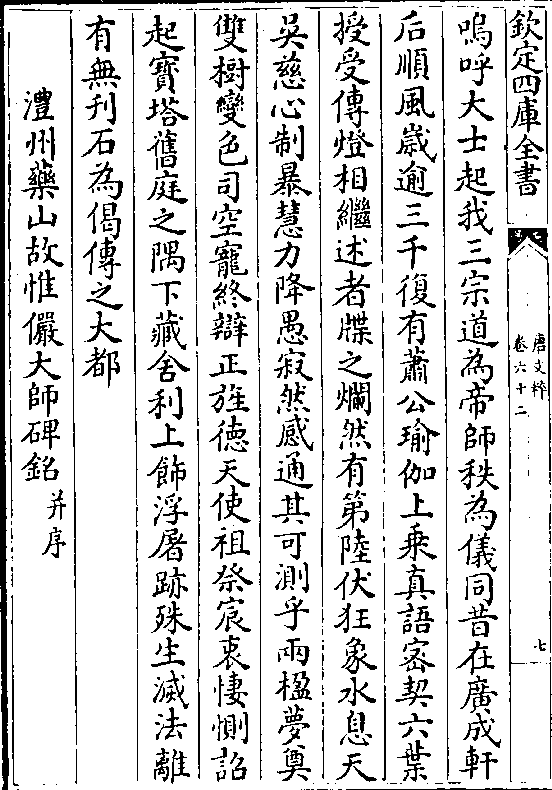 欽定四庫全書
唐文粹
卷六十二
七
嗚呼大士起我三宗道為帝師秩為儀同昔在廣成軒
后順風歲逾三千復有蕭公瑜伽上乗真語宻契六葉
授受傳燈相繼述者牒之爛然有第陸伏狂象水息天
吳慈心制暴慧力降愚寂然感通其可測乎兩楹夢奠
雙樹變色司空寵終辯正旌德天使祖祭宸衷悽惻詔
起寳塔舊庭之隅下藏舍利上飾浮屠跡殊生滅法離
有無刊石為偈傳之大都
澧州藥山故惟儼大師碑銘 并序